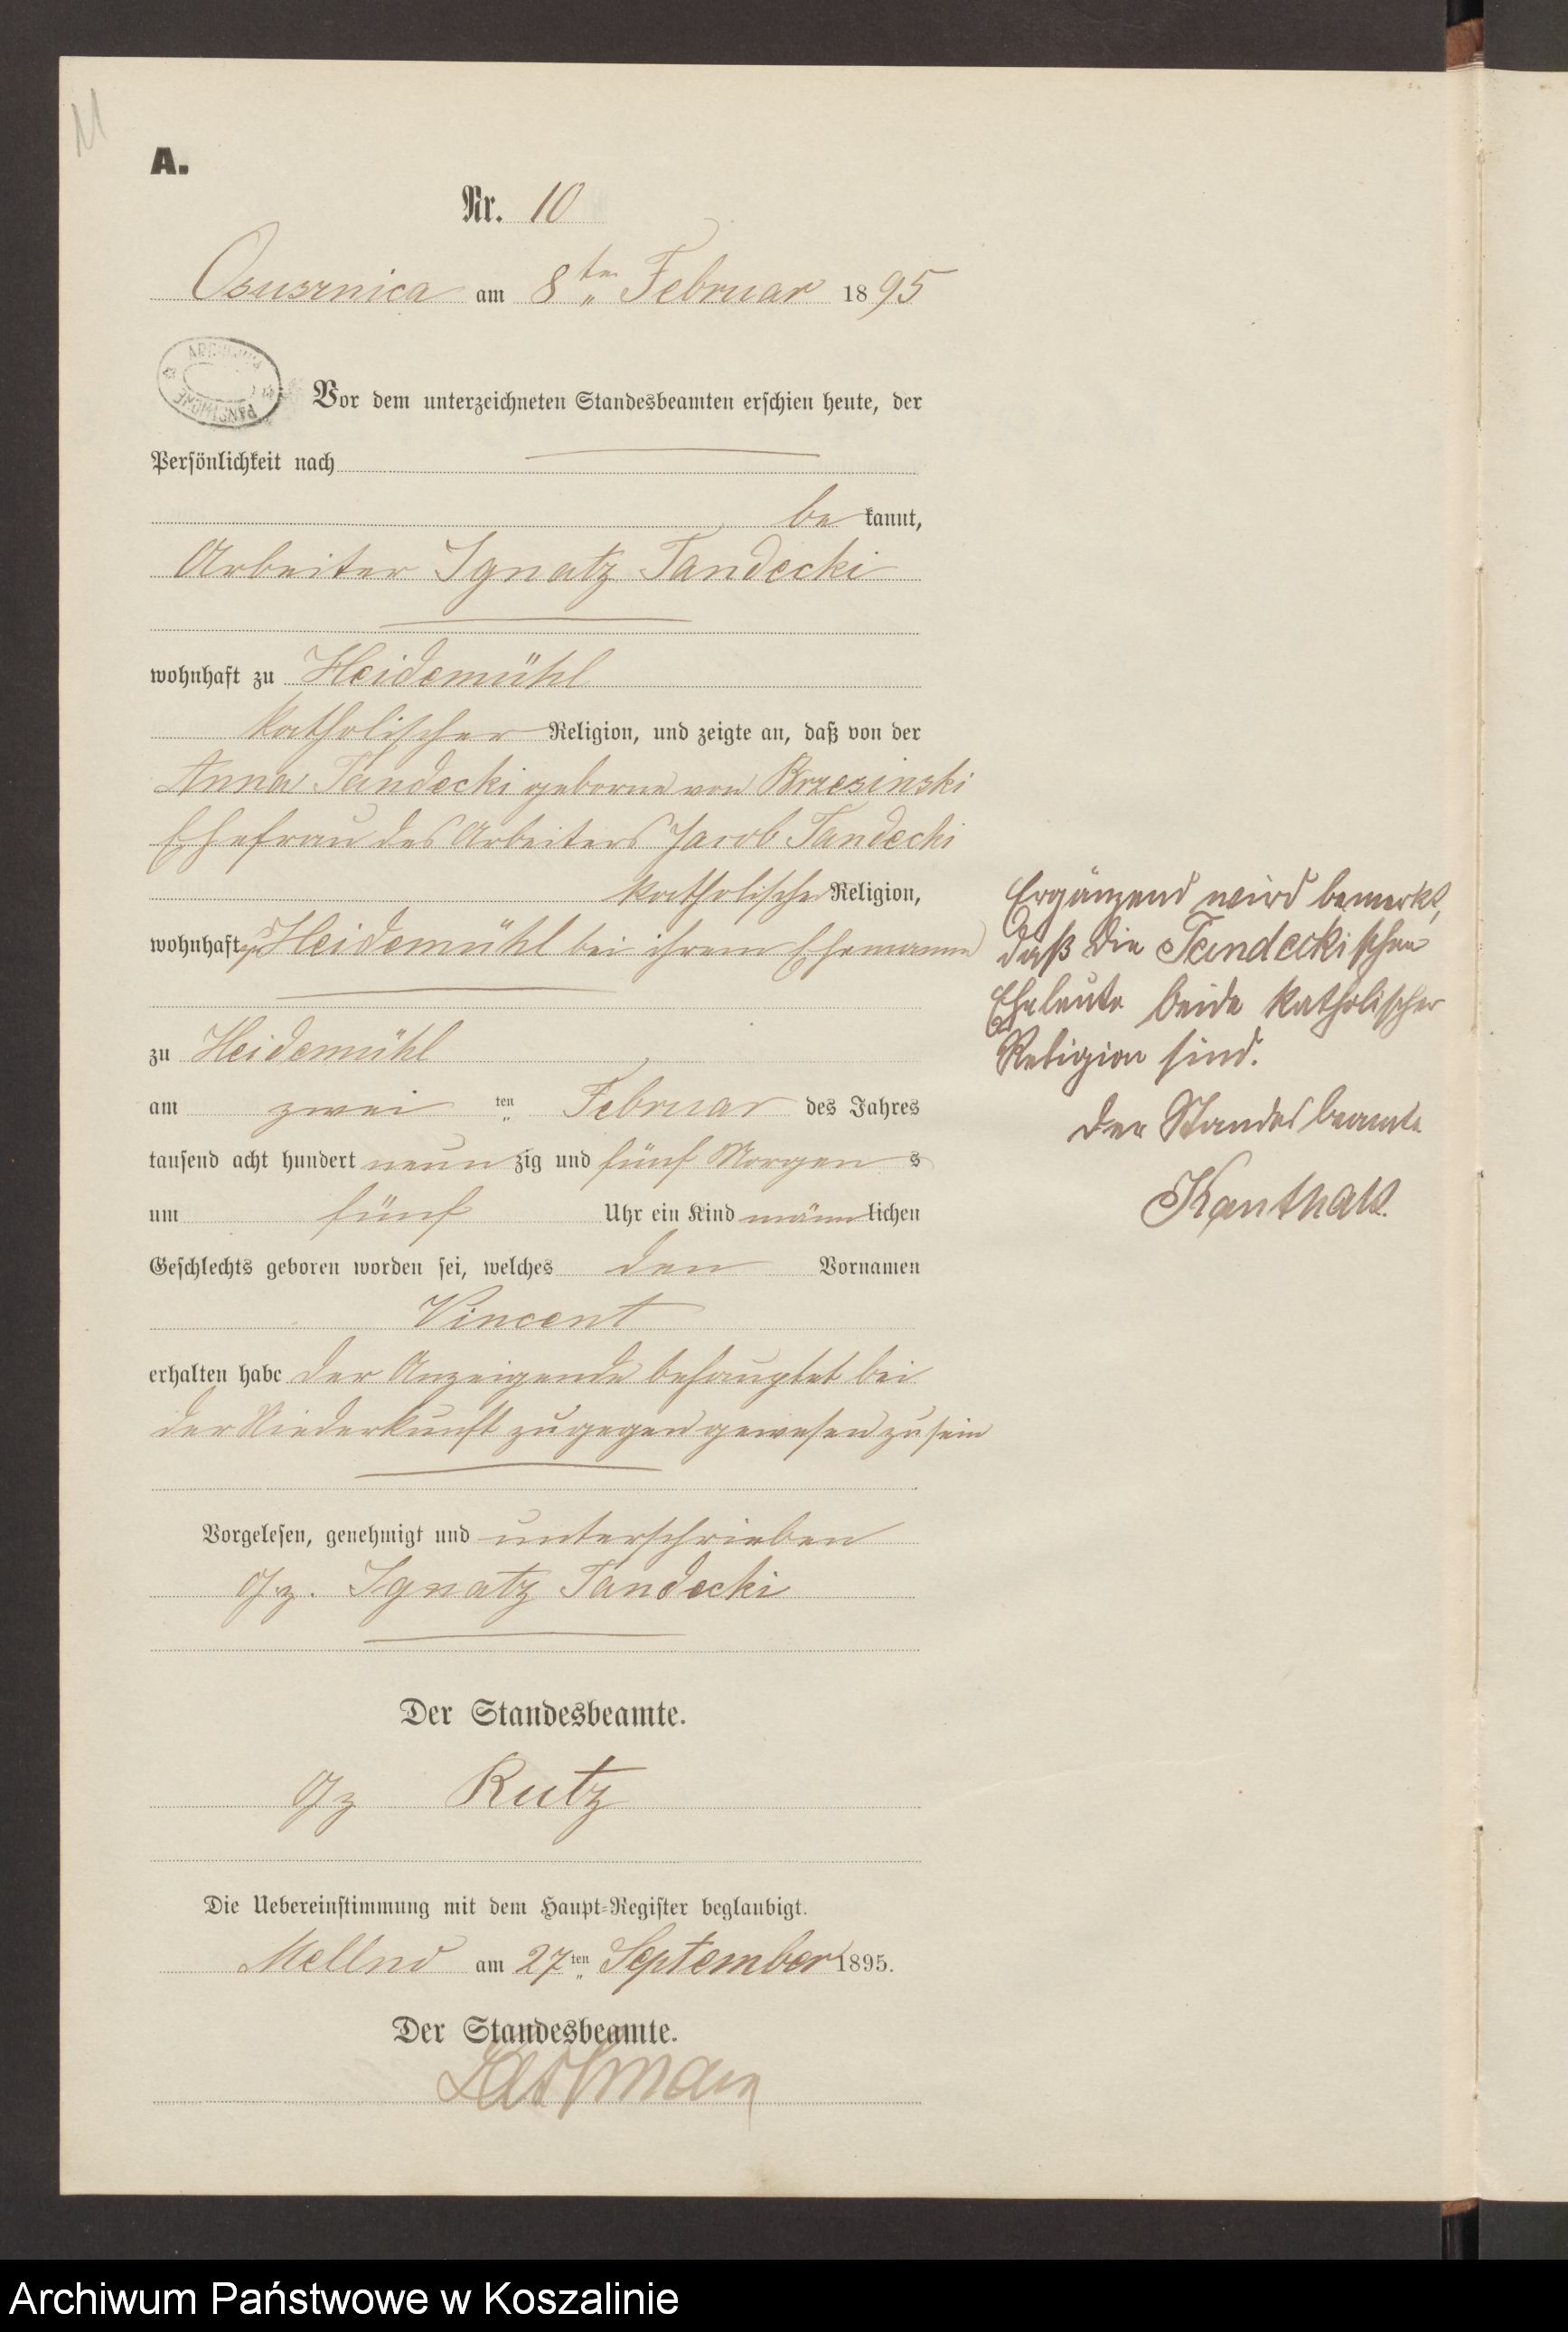 11
A.
Nr. 10
Osusznica am 8ten Februar 1895
ARCHIWUM PAŃSTWOWE
Vor dem unterzeichneten Standesbeamten erschien heute, der
Persönlichkeit nach
be kannt,
Arbeiter Ignatz Tandecki
wohnhaft zu Heidemühl
katholischer Religion, und zeigte an, daß von der
Anna Tandecki geborene von Brzesinski
Ehefrau des Arbeiters Jacob Tandecki
katholischer Religion,
wohnhaft zu Heidemühl bei ihrem Ehemanne
zu Heidemühl
am zwei ten Februar des Jahres
tausend acht hundert neun zig und fünf Morgen s
um fünf Uhr ein Kind männ lichen
Geschlechts geboren worden sei, welches den Vornamen
Vincent
erhalten habe der Anzeigende behauptet bei
der Niederkunft zugegen gewesen zu sein
Vorgelesen, genehmigt und unterschrieben
gz. Ignatz Tandecki
Der Standesbeamte.
gz Rutz
Die Uebereinstimmung mit dem Haupt-Register beglaubigt.
am 27ten September 1895.
Der Standesbeamte.
Ergänzend wird bemerkt,
daß die Tandeckischen
Eheleute beide katholischer
Religion sind.
Der Standesbeamte
Archiwum Państwowe w Koszalinie